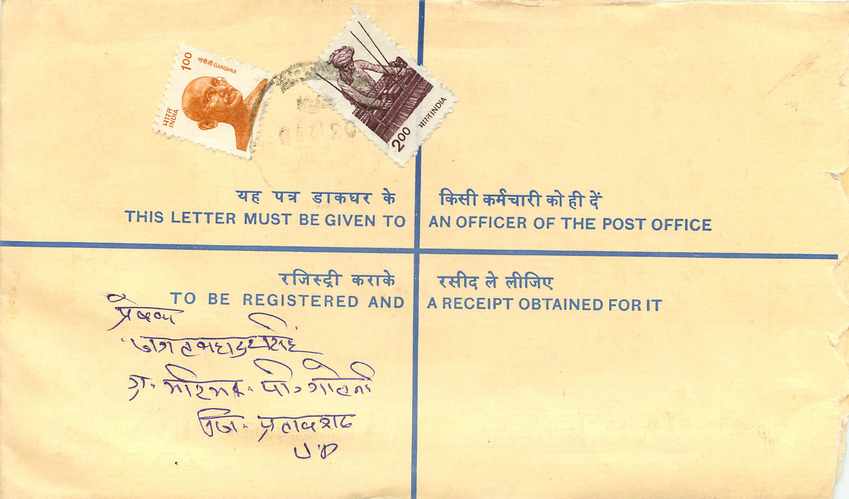 1.00
गांधी GANDHI
भारत
INDIA
2.00
भारत INDIA
यह पत्र डाकघर के किसी कर्मचारी को ही दें
THIS LETTER MUST BE GIVEN TO AN OFFICER OF THE POST OFFICE
रजिस्ट्री कराके रसीद ले लीजिए
TO BE REGISTERED AND A RECEIPT OBTAINED FOR IT
प्रेषक
जगत बहादुर सिंह
ग्रा. पो.
जि. प्रतापगढ
U.P